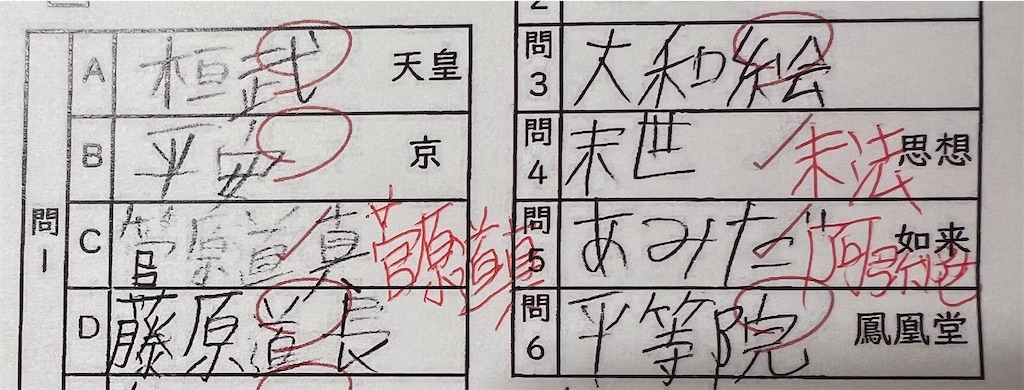 問1
A 桓武 天皇
B 平安 京
C 管原道真 菅原道真
D 藤原道長
2
問3 大和絵
問4 末世 末法 思想
問5 あみだ 阿弥陀 如来
問6 平等院 鳳凰堂